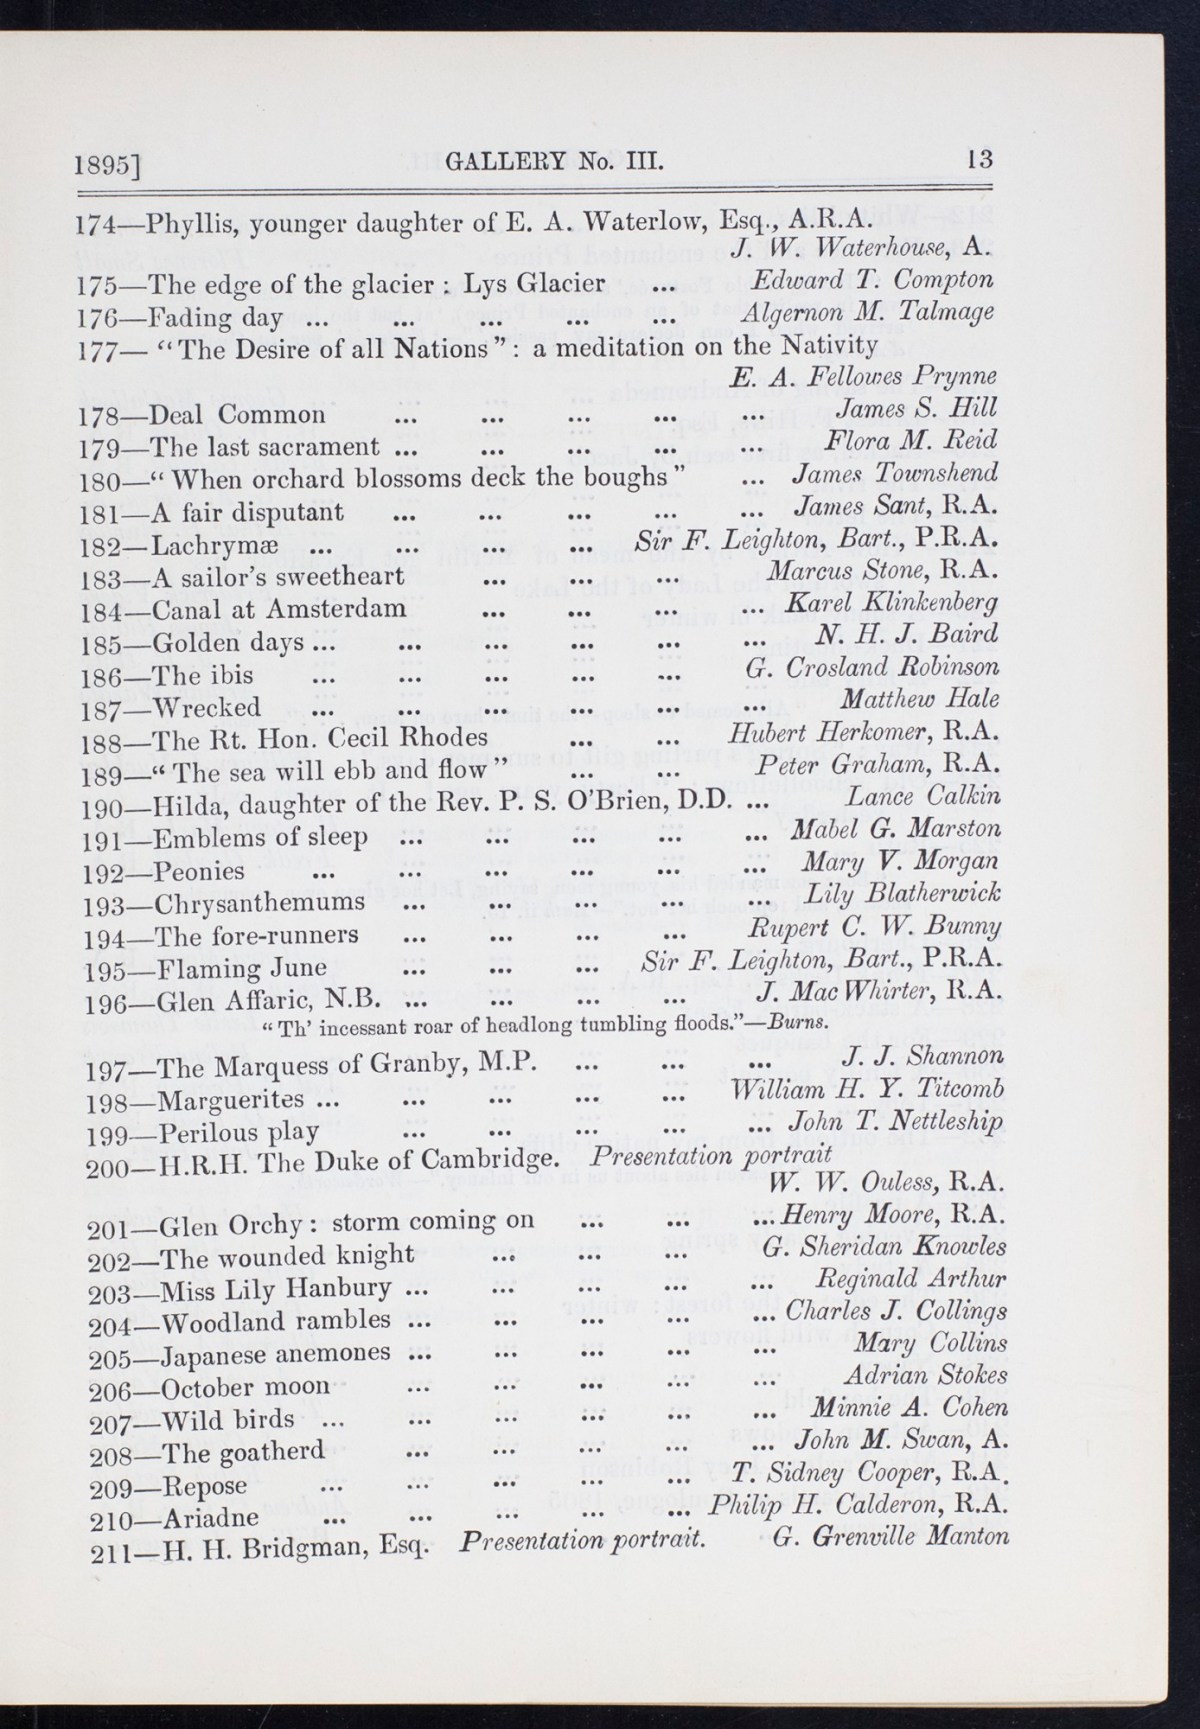 1895] GALLERY No. III. 13
174—Phyllis, younger daughter of E. A. Waterlow, Esq., A.R.A.
J. W. Waterhouse, A.
175—The edge of the glacier : Lys Glacier ... Edward T. Compton
176—Fading day ... ... ... ... ... Algernon M. Talmage
177— “The Desire of all Nations” : a meditation on the Nativity
E. A. Fellowes Prynne
178—Deal Common ... ... ... ... ... James S. Hill
179—The last sacrament ... ... ... ... ... Flora M. Reid
180—“ When orchard blossoms deck the boughs ” ... James Townshend
181—A fair disputant ... ... ... ... ... James Sant, R.A.
182—Lachrymæ ... ... ... ... Sir F. Leighton, Bart., P.R.A.
183—A sailor’s sweetheart ... ... ... Marcus Stone, R.A.
184—Canal at Amsterdam ... ... ... ... Karel Klinkenberg
185—Golden days ... ... ... ... ... ... N. H. J. Baird
186—The ibis ... ... ... ... ... G. Crosland Robinson
187—Wrecked ... ... ... ... ... ... Matthew Hale
188—The Rt. Hon. Cecil Rhodes ... ... Hubert Herkomer, R.A.
189—“ The sea will ebb and flow ” ... ... Peter Graham, R.A.
190—Hilda, daughter of the Rev. P. S. O’Brien, D.D. ... Lance Calkin
191—Emblems of sleep ... ... ... ... ... Mabel G. Marston
192—Peonies ... ... ... ... ... ... Mary V. Morgan
193—Chrysanthemums ... ... ... ... ... Lily Blatherwick
194—The fore-runners ... ... ... ... Rupert C. W. Bunny
195—Flaming June ... ... ... Sir F. Leighton, Bart., P.R.A.
196—Glen Affaric, N.B. ... ... ... ... J. MacWhirter, R.A.
“ Th’ incessant roar of headlong tumbling floods.”—Burns.
197—The Marquess of Granby, M.P. ... ... ... J. J. Shannon
198—Marguerites ... ... ... ... ... William H. Y. Titcomb
199—Perilous play ... ... ... ... ... John T. Nettleship
200—H.R.H. The Duke of Cambridge. Presentation portrait
W. W. Ouless, R.A.
201—Glen Orchy : storm coming on ... ... ... Henry Moore, R.A.
202—The wounded knight ... ... ... G. Sheridan Knowles
203—Miss Lily Hanbury ... ... ... ... ... Reginald Arthur
204—Woodland rambles ... ... ... ... ... Charles J. Collings
205—Japanese anemones ... ... ... ... ... Mary Collins
206—October moon ... ... ... ... ... Adrian Stokes
207—Wild birds ... ... ... ... ... ... Minnie A. Cohen
208—The goatherd ... ... ... ... ... John M. Swan, A.
209—Repose ... ... ... ... ... T. Sidney Cooper, R.A.
210—Ariadne ... ... ... ... ... Philip H. Calderon, R.A.
211—H. H. Bridgman, Esq. Presentation portrait. G. Grenville Manton